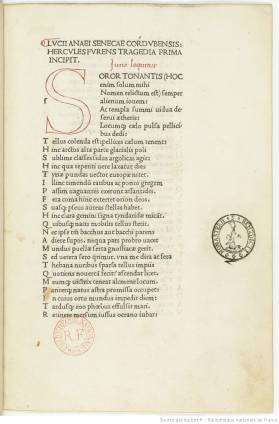 LVCII ANAEI SENECAE CORDVBENSIS:
HERCVLES FVRENS TRAGEDIA PRIMA
INCIPIT.
Juno loquitur
SOROR TONANTIS (HOC
enim solum mihi
Nomen relictum est) semper
alienum iouem:
Ac templa summi uidua de
serui ætheris:
Locumq; cælo pulsa pellici
bus dedi:
Tellus colenda est: pellices cælum tenent:
Hinc arctos alta parte glacialis poli
Sublime classes sidus argolicas agit:
Hinc qua tepenti uere laxatur dies
Tyriæ pundas uector europæ nitet.
Illinc timendũ ratibus ac ponto gregem
Passim uagantes exerunt atlantides.
Fera coma hinc exterret orion deos.
Suasq; pseus aureas stellas habet.
Hinc clara gemini signa tyndaridæ micãt.
Quibusq; natis mobilis tellus stetit.
Nec ipse tm̃ bacchus aut bacchi parens
Adiere supos. nequa pars probro uacet
Mundus puellæ serta gnosiacæ gerit.
Sed uetera sero querimur. una me dira ac fera
Thebana nuribus sparsa tellus impiis
Quotiens nouercã fecit: ascendat licet
Meumq; uictrix teneat alcmene locum.
Pariterq; natus astra promissa occupet:
In cuius ortu mundus impendit diem:
Tardusq; eoo phœbus effulsit mari.
Retinere mersum iussus oceano iubar:
R F
Source gallica.bnf.fr / Bibliothèque nationale de France